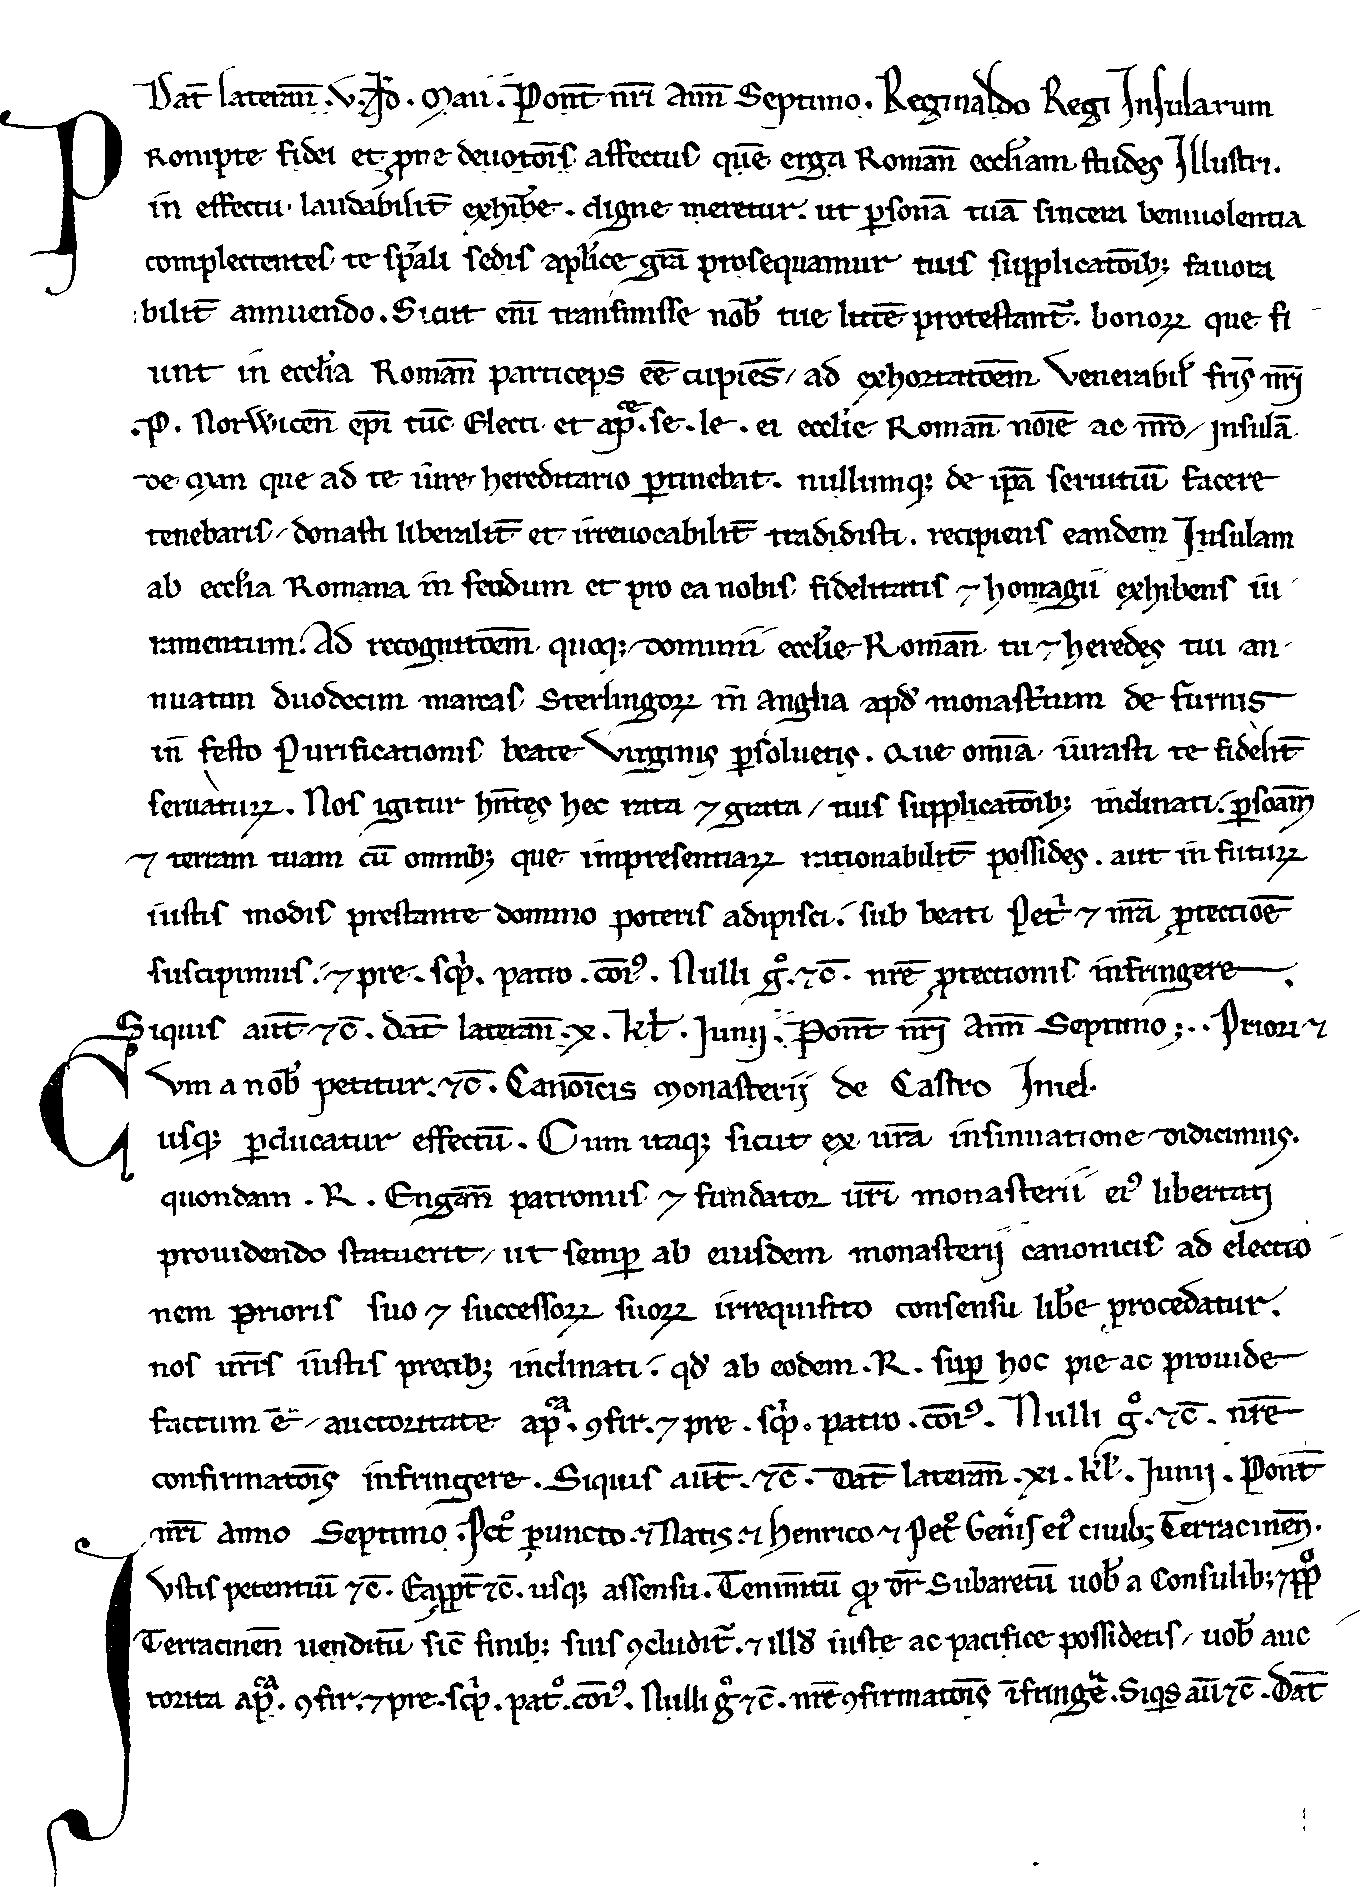 Dat̄ lateran̄ .v. Id̄ . Maii . Pont̄ nr̄i Ann̄ Septimo . Reginaldo Regi Insularum
Rompte fidei et pꝛne deuotōis affectus quē erga Roman̄ eccl̄iam studes Illustri .
in effectu laudabilit̄ exhib̄e . digne meretur . ut ꝑsonā tuā sincera beniuolentia
complectentes te sp̄ali sedis apl̄ice gr̄a prosequamur tuis supplicatōib; fauora
bilit̄ annuendo . Sicut eni̅ transmisse nob̄ tue litt̄e protestant̄ . bonoꝝ que fi
unt in eccl̄ia Roman̄ particeps eē cupiēs / ad exhortatōem Venerabil̄ fr̄is nr̄i
.P. Norwicen̄ ep̄i tūc Electi et apᵉ̄ . se . le . ei eccl̄ie Roman̄ nōie ac nr̄o / Insulā
de Man que ad te iure hereditario ꝑtinebat . nullumq; de ip̄a seruitiū facere
tenebaris / donasti liberalit̄ et irreuocabilit̄ tradidisti . recipiens eandem Insulam
ab eccl̄ia Romana in feudum et pro ea nobis fidelitatis ⁊ homagii exhibens iu
ramentum . Ad recognitōem quoq; dominii eccl̄ie Roman̄ tu ⁊ heredes tui an
nuatim duodecim marcas Sterlingoꝝ in̄ Anglia apd̄ monast̄ium de furnis
in̄ festo Purificationis beate Virginis ꝑsoluetis . Que om̄ia iurasti te fidelit̄
seruaturꝝ . Nos igitur hn̄tes hec rata ⁊ grata / tuis supplicatōib; inclinati . ꝑsoam̄
⁊ terram tuam cū omnib; que impresentiaꝝ rationabilit̄ possides . aut in futurꝝ
iustis modis prestante domino poteris adipisci . sub beati Pet̄ ⁊ nr̄a ꝓtectiōe
suscipimus . ⁊ pre . sc̄p . patro . cōi⁹ . Nulli gͦ . ⁊c̄ . nr̄e ꝓtectionis infringere .
Siquis aut̄ ⁊c̄ . dat̄ lateran̄ . x . kl̄ . Junij . Pont̄ nr̄j Ann̄ Septimo ; . . Priori ⁊
Cvm a nob̄ petitur . ⁊c̄ . Canōicis Monasterij de Castro Imel .
usq; ꝑducatur effectū . Cum itaq; sicut ex ur̄a insinuatione didicimus .
quondam . R . Engan̄ patronus ⁊ fundator ur̄i monasterii ei⁹ libertati
prouidendo statuerit / ut semꝑ ab eiusdem monasterij canonicis ad electio
nem Prioris suo ⁊ successoꝝ suoꝝ irrequisito consensu lib̄e procedatur .
nos ur̄is iustis precib; inclinati . qd̄ ab eodem . R . suꝑ hoc pie ac prouide
factum ē / auctoritate apᵃ̄ . ꝯfir . ⁊ pre . sc̄p . patro . cōi⁹ . Nulli gͦ . ⁊c̄ . nr̄e
confirmatōis infringere . Siquis aut̄ . ⁊c̄ . Dat̄ lateran̄ . xi . kl̄ . Junij . Pont̄
nr̄i Anno Septimo . Petͦ puncto . ⁊ Natis . ⁊ Henrico ⁊ Petͦ Gem̄is ei⁹ ciuib; Terracinen̄ .
Ivstis petentiū ⁊c̄ . Eapp̄t ⁊c̄ . usq; assensu . Tenim̄tū ꝙ dr̄ Subaretū uob̄ a Consulib; ⁊ pp̄ͦ
Terracinen̄ uenditū sic̄ finib; suis ꝯcludit̄ . ⁊ illd̄ iuste ac pacifice possidetis / uob̄ auc
torita apᵃ̄ . ꝯfir . ⁊ pre . sc̄p . patͦ . cōi⁹ . Nulli gͦ ⁊c̄ . nr̄e ꝯfirmatōis īfrinḡe . Siqͥs au̅ ⁊c̄ . Dat̄